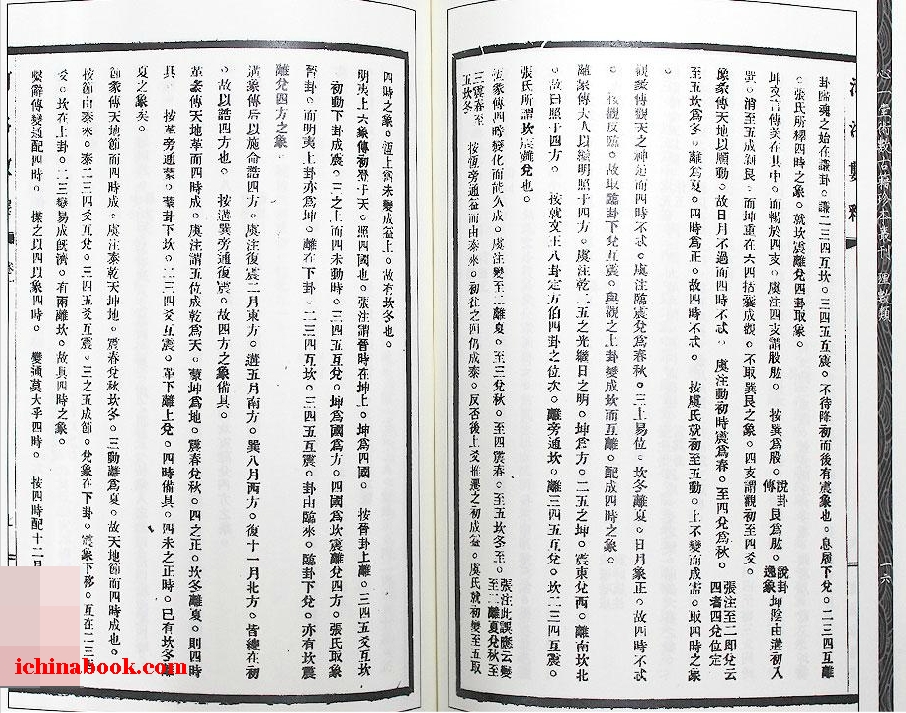 河洛數釋
卦歸魂之始在謙卦。謙二三四互坎。三四五互震。不待降初而後有震象也。息履下兌。二三四互離
。張氏所釋四時之象。就坎震離兌四卦取象。
坤文言傳美在其中。而暢於四支。虞注四支謂股肱。 按巽爲股。說卦傳艮爲肱。說卦逸象坤陰由遘初入
巽。消至五成剝艮。而坤重在六四括囊成觀。不取巽艮之象。四支謂觀初至四爻。
豫彖傳天地以順動。故日月不過而四時不忒。 虞注動初時震爲春。至四兌爲秋。張注至二卽兌云四者四兌位定
至五坎爲冬。離爲夏。四時爲正。故四時不忒。 按虞氏就初至五動。上不變而成需。取四時之象
。
觀彖傳觀天之神道而四時不忒。虞注臨震兌爲春秋。三上易位。坎冬離夏。日月象正。故四時不忒
。 按觀反臨。故取臨卦下兌互震。與觀之上卦變成坎而互離。配成四時之象。
離彖傳大人以繼明照于四方。虞注乾二五之光繼日之明。坤爲方。二五之坤。震東兌西。離南坎北
。故曰照于四方。 按就文王八卦定方伯四卦之位次。離旁通坎。離三四五互兌。坎二三四互震。
張氏所謂坎震離兌也。
恆彖傳四時變化而能久成。虞注變至二離夏。至三兌秋。至四震春。至五坎冬至。張注此誤應云變至二離夏兌秋至
三震春至五坎冬 按恆旁通益而由泰來。初往之四仍成泰。反否後上爻推遷之初成益。虞氏就初變至五取
四時之象。恆上爻未變成益上。故有坎冬也。
明夷上六象傳初登于天。照四國也。張注謂晉時在坤上。坤爲四國。 按晉卦上離。三四五爻互坎
。初動下卦成震。三之上而四未動時。三四五互兌。坤爲國爲方。四國爲坎震離兌四方。張氏取象
晉卦。而明夷上卦亦爲坤。離在下卦。二三四互坎。三四五互震。卦由臨來。臨卦下兌。亦有坎震
離兌四方之象
遘象傳后以施命誥四方。虞注復震二月東方。遘五月南方。巽八月西方。復十一月北方。皆總在初
。故以誥四方也。 按遘巽旁通復震。故四方之象備具。
革彖傳天地革而四時成。虞注謂五位成乾爲天。蒙坤爲地。震春兌秋。四之正。坎冬離夏。則四時
具。 按革旁通蒙。蒙卦下坎。二三四爻互震。革下離上兌。四時備具。四未之正時。已有坎冬離
夏之象矣。
節彖傳天地節而四時成。虞注泰乾天坤地。震春兌秋坎冬。三動離爲夏。故天地節而四時成也。
按節由泰來。泰二三四爻互兌。三四五爻互震。三之五成節。兌象在下卦。震象下移。互在二三
爻。坎在上卦。二三變易成旣濟。有兩離坎。故具四時之象。
繫辭傳變通配四時。 揲之以四以象四時。 變通莫大乎四時。 按四時配十二月
心一堂術數古籍珍本叢刊
理數類
一六
卷一
七
ichinabook.com